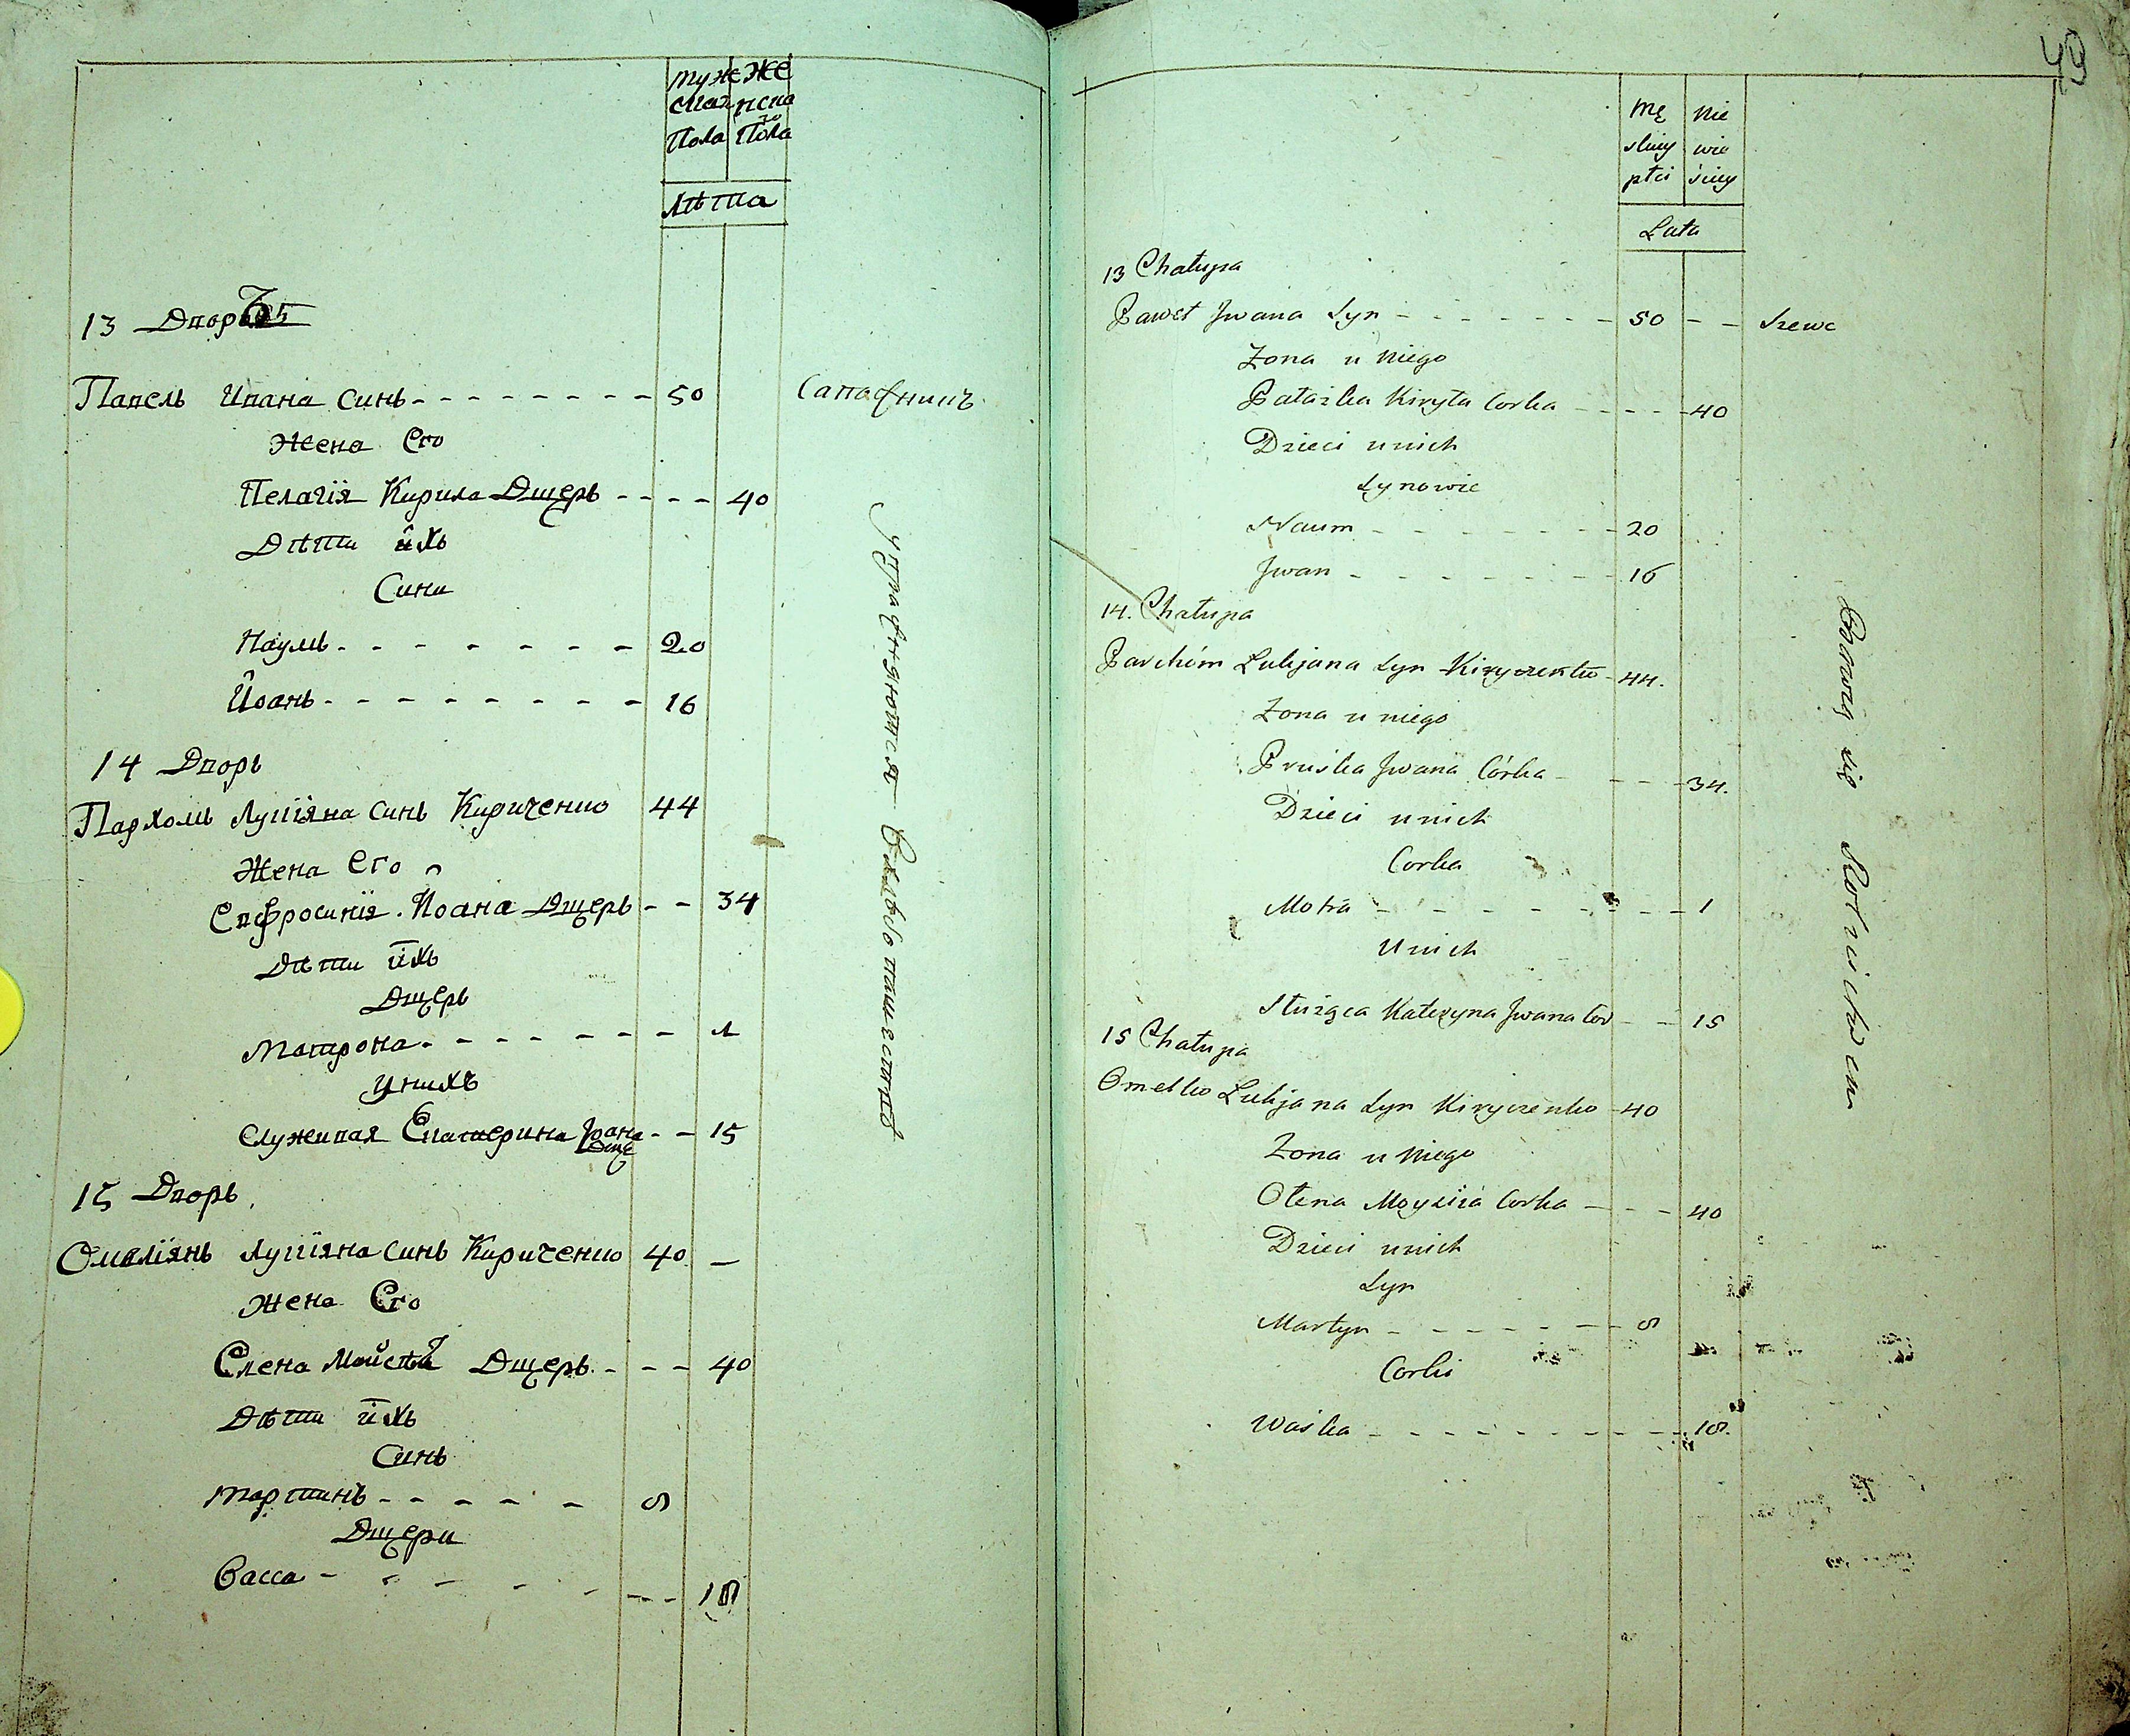 Муже Же
ска нска
го
Пола Пола
Лѣта
13 Дворъ
Павелъ Ивана синъ - - - - - - - - 50 Сапожникъ
Жена Его
Пелагія Кирила Дщерь - - - - 40
Дѣти ихъ
Сини
Наумъ - - - - - - - 20
Иоанъ - - - - - - - - 16
14 Дворъ
Пархомъ Лукіяна синъ Кириченко 44
Жена Его
Евфросинія Иоана Дщерь - - 34
Дѣти ихъ
Дщерь
Матрона - - - - - - - 1
У нихъ
Служивая Екатерина Іоана Дще - - 15
15 Дворъ
Омеліянъ Лукіяна синъ Кириченко 40 -
Жена Его
Елена Мойсея Дщерь - - - 40
Дѣти ихъ
Синъ
Мартинъ - - - - - - 8
Дщери
Васса - - - - - - - - 18
Упражняются Хлѣбопашеством
49
Mę Nie
skiey wie
płci ściey
Lata
13 Chałupa
Paweł Jwana Syn - - - - - - - - 50 - - Szewc
Zona u Niego
Pałażka Kiryła Corka - - - - 40
Dzieci u nich
Synowie
Naum - - - - - - - 20
Jwan - - - - - - - 16
14. Chałupa
Parchim Łukjana Syn Kiryczenko - 44.
Zona u niego
Pruśka Jwana Córka - - - - 34.
Dzieci u nich
Corka
Motra - - - - - - - - 1
U nich
Służąca Kateryna Jwana Cor - - 15
15 Chałupa
Omelko Łukjana Syn Kiryczenko - 40
Zona u Niego
Ołena Moyzisa Corka - - - 40
Dzieci u nich
Syn
Martyn - - - - - - - 8
Corki
Waśka - - - - - - - - - 18.
Bawią się Rolnictwem